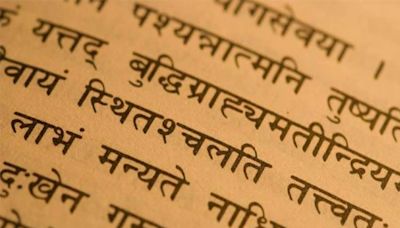 योगसेवया ।
न पश्यन्नात्मनि तुष्यति
कं यत्तद् बुद्धिग्राह्यमतीन्द्रिय
वायं स्थितश्चलति तत्त्वतः
लाभं मन्यते नाधि
दुःखेन गुरु